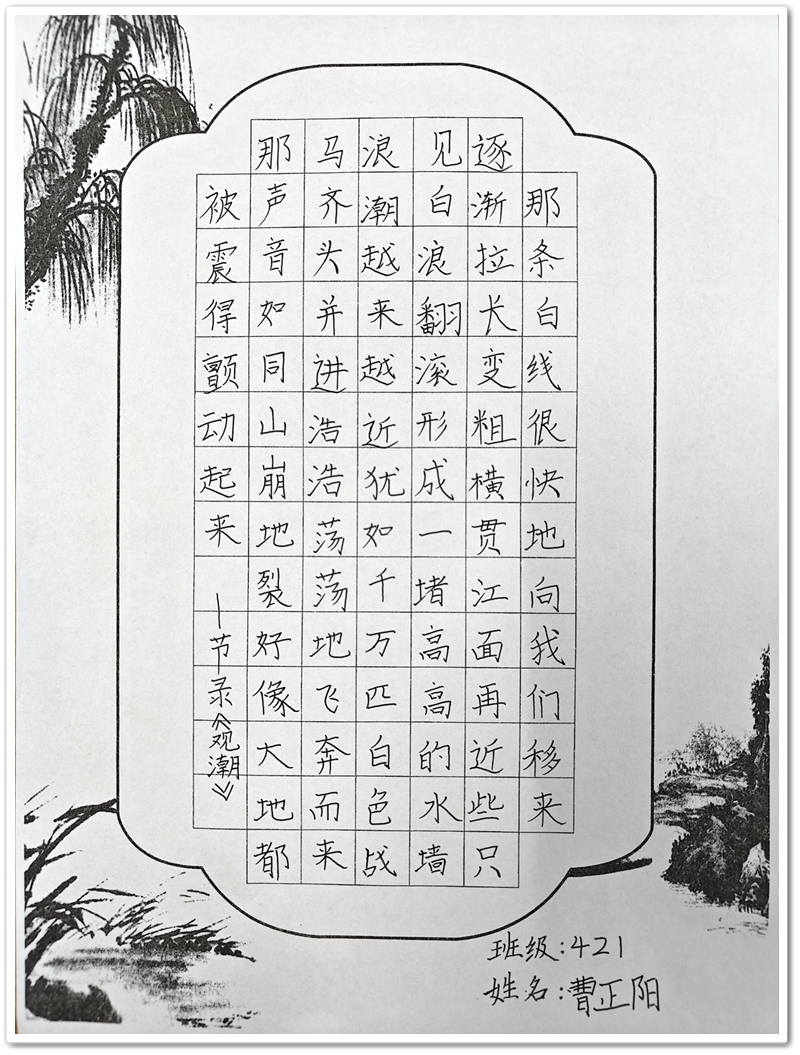 那条白线很快地向我们移来
逐渐拉长变粗横贯江面再近些只
见白浪翻滚形成一堵高高的水墙
浪潮越来越近犹如千万匹白色战
马齐头并进浩浩荡荡地飞奔而来
那声音如同山崩地裂好像大地都
被震得颤动起来
—节录《观潮》
班级:421
姓名:曹正阳